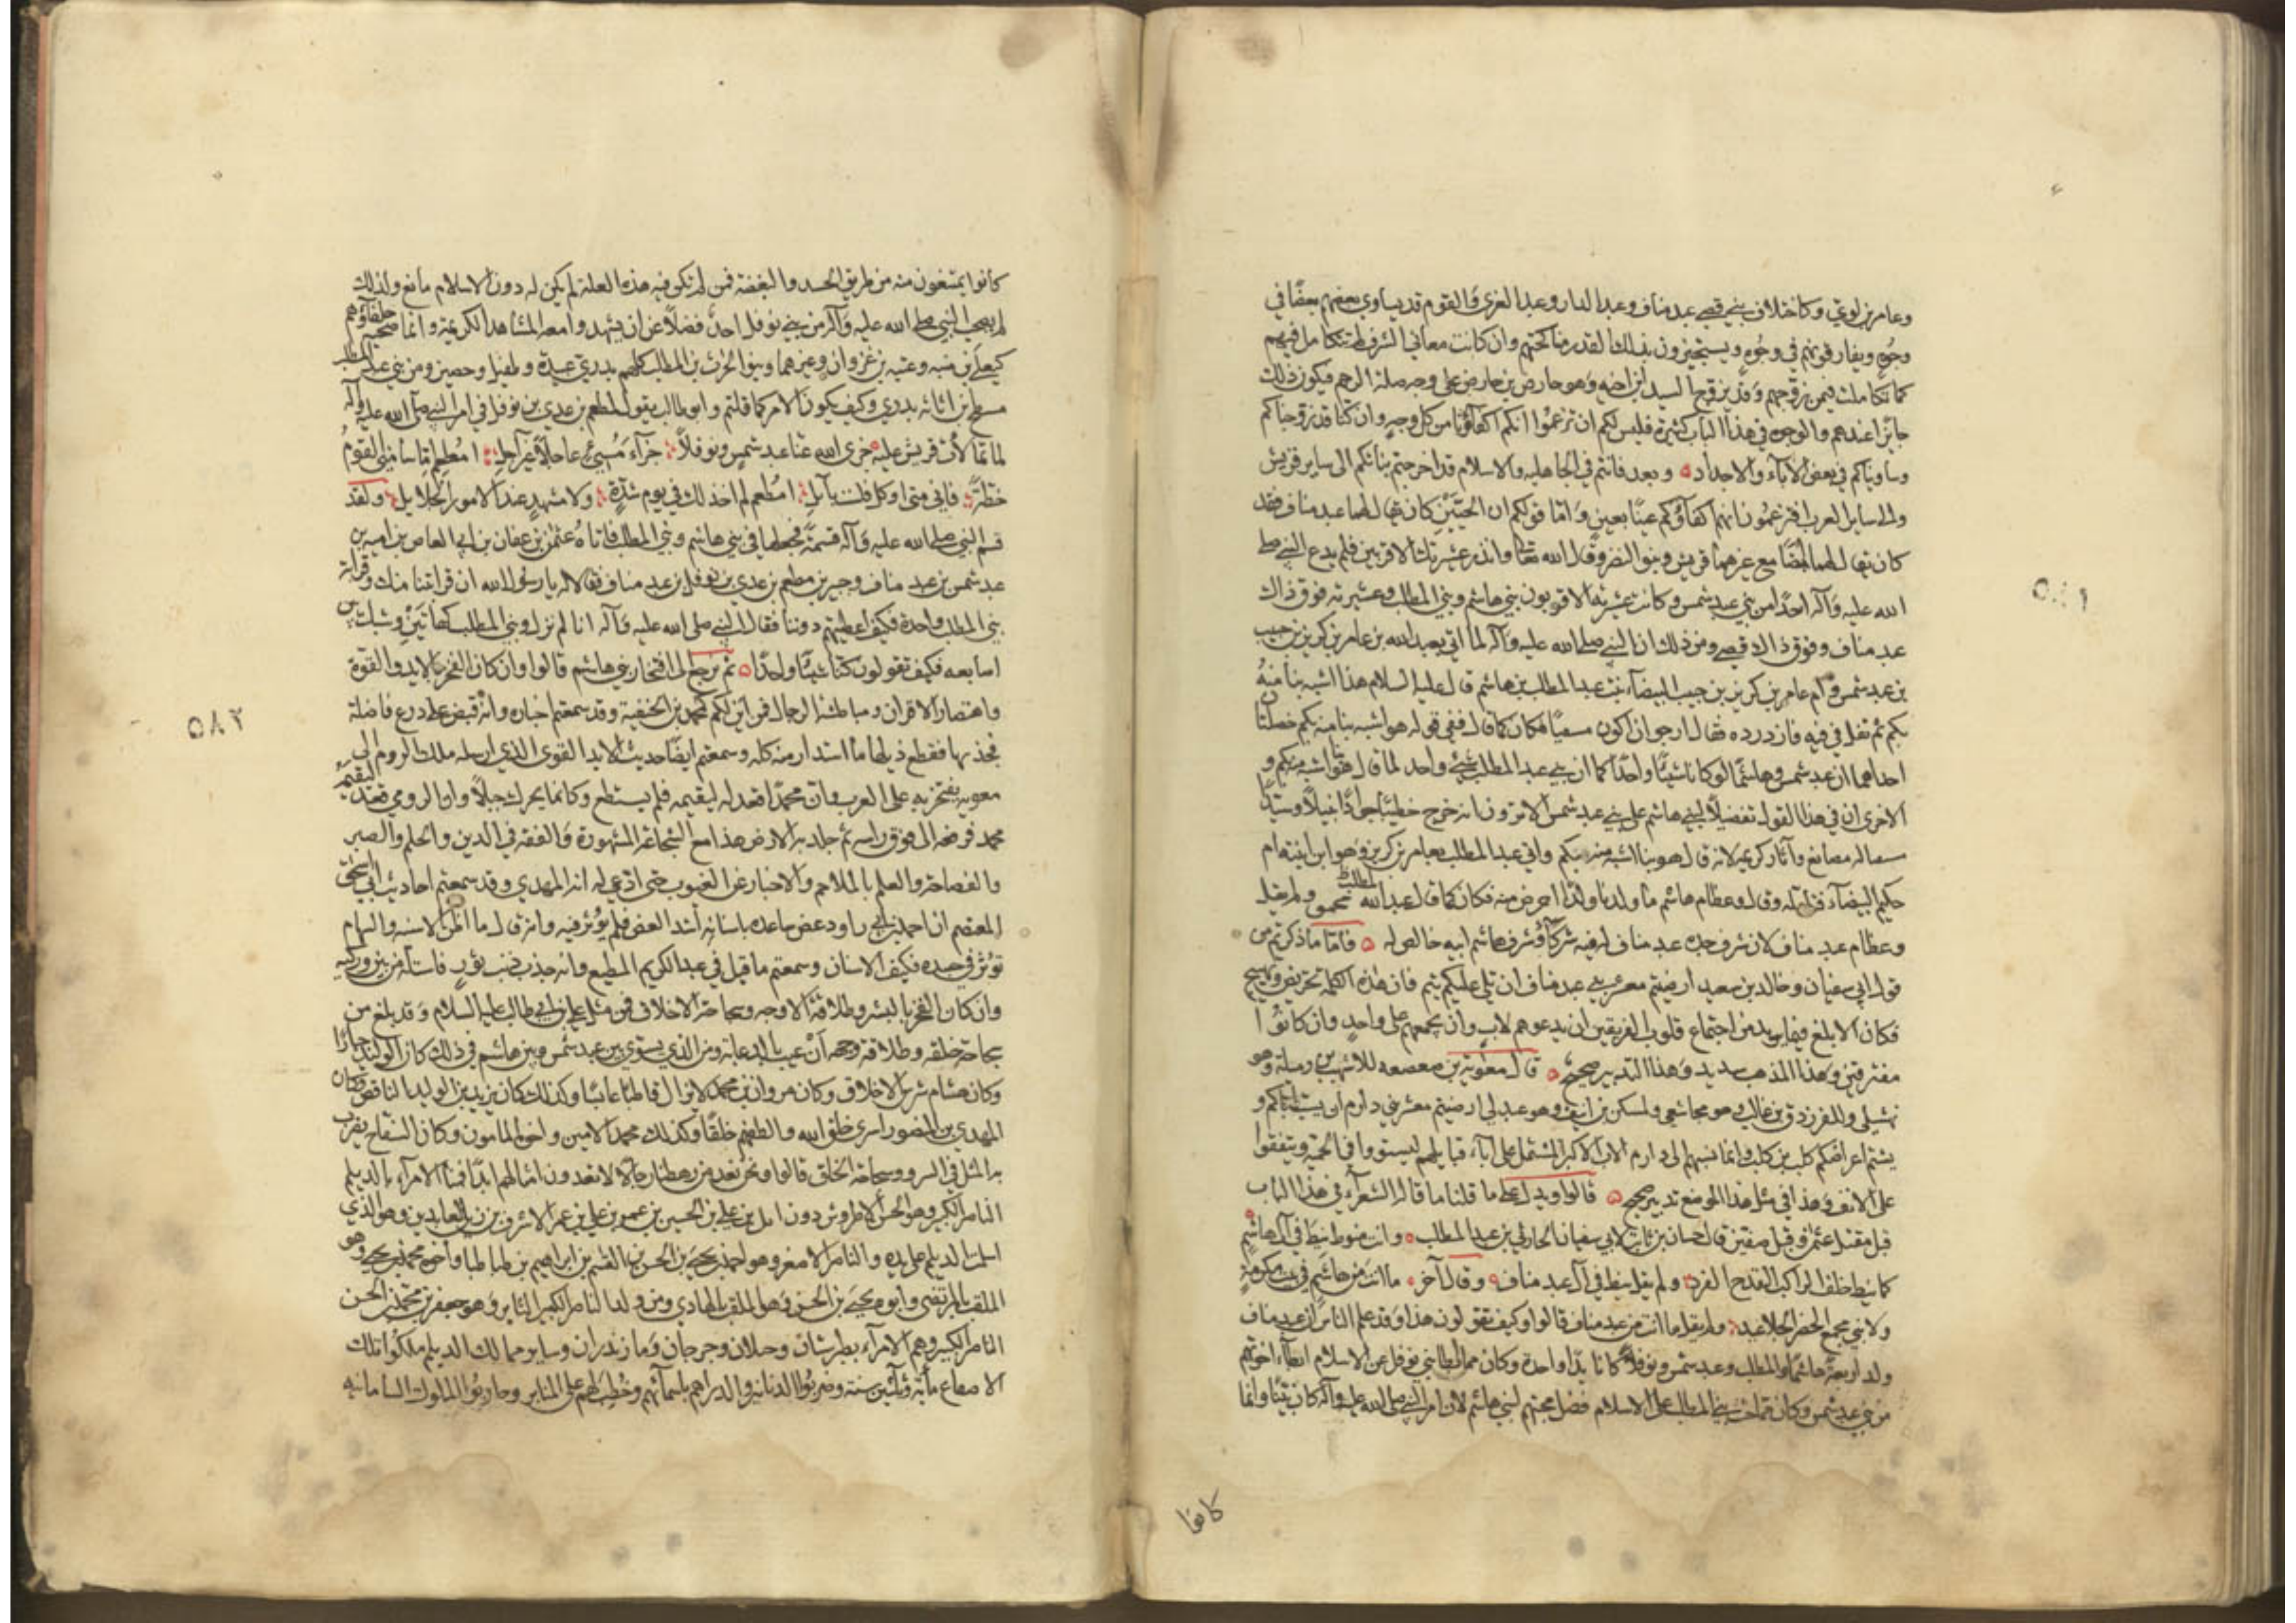 وعامر بن لوي وكاختلاف بني قصي عبد مناف وعبد الدار وعبد العزى والقوم قد يساوي بعضهم بعضًا في
وجوه ويفارقونهم في وجوه ويستجيزون بذلك القدر مناكحتهم وان كانت معاني الشرف لم تتكامل فيهم
كما تكاملت فيمن زوجهم وقد يزوج السيد ابن اخيه وهو حارض بن حارض على وجه صلة الرحم فيكون ذلك
جائزا عندهم والوجوه في هذا الباب كثيرة فليس لكم ان تزعموا انكم اكفاؤنا من كل وجه وان كنا قد زوجناكم
وساويناكم في بعض الاباء والاجداد ٥ وبعد فانتم في الجاهلية والاسلام قد اخرجتم بناتكم الى ساير قريش
والى ساير العرب افتزعمون انهم اكفاؤكم عينًا بعين واما قولكم ان الحيين كان يقال لهما عبد مناف فقد
كان يقال لهما ايضًا مع غيرهما قريش وبنو النضر وقال الله تعالى وانذر عشيرتك الاقربين فلم يدع النبي صلى
الله عليه وآله احدًا من بني عبد شمس وكانت عشيرته الاقربون بني هاشم وبني المطلب وعشيرته فوق ذلك
عبد مناف وفوق ذلك قصي ومن ذلك ان النبي صلى الله عليه وآله لما اتي بعبد الله بن عامر بن كريز بن حبيب
بن عبد شمس وام عامر بن كريز بن حبيب البيضاء بنت عبد المطلب بن هاشم قال عليه السلام هذا اشبه بنا منه
بكم ثم تفل في فيه فازدرده فقال ارجو ان يكون مسقيًا فكان كما قال ففي قوله هو اشبه بنا منه بكم خصلتان
احداهما ان عبد شمس وهاشمًا لو كانا شيئًا واحدًا كما ان بني عبد المطلب شيء واحد لما قال هو اشبه بنا منه بكم و
الاخرى ان في هذا القول تفضيلًا لبني هاشم على بني عبد شمس الا ترون انه خرج خطيبًا جوادًا نبيلًا وسيدًا
مسقا له مصانع وآثار كريمة لانه قال هو بنا اشبه منه بكم واتي عبد المطلب بعامر بن كريز وهو ابن ابنته ام
حكيم البيضاء فتأمله وقال وعظام هاشم ما ولدنا ولدًا احرض منه فكان كما قال عبد الله يحمق ولم يقل
وعظام عبد مناف لان شرف جده عبد مناف له فيه شركاء وشرف هاشم ابيه خالص له ٥ فاما ما ذكرتم من
قول ابي سفيان وخالد بن سعيد ارضيتم معشر بني عبد مناف ان تلي عليكم تيم فان هذه الكلمة تحريض وتهييج
فكان الابلغ فيما يريد من اجتماع قلوب الفريقين ان يدعوهم لاب وان يجمعهم على واحد وان كانوا
مفترقين وهذا المذهب سديد وهذا التدبير صحيح ٥ قال معوية بن صعصعة للاشهب بن رميلة وهو
نهشلي وللفرزدق بن غالب وهو مجاشعي ولمسكين بن انيف وهو عبدلي ارضيتم معشر بني دارم ان يسب اباكم و
يشتم اعراضكم كلب بن كلب وانما نسبهم الى دارم الاب الاكبر المشتمل على آباء قبايلهم ليستووا في الحمية ويتفقوا
على الانف وهذا في مثل هذا الموضع تدبير صحيح ٥ قالوا ويدل على ما قلنا ما قاله الشعراء في هذا الباب
قبل مقتل عثمان وقبل صفين قال حسان بن ثابت لابي سفيان بن الحارث بن عبد المطلب ٥ وانت منوط نيط في آل هاشم
كما نيط خلف الراكب القدح الفرد ولم يقل نيط في آل عبد مناف وقال آخر ما انت من هاشم في بيت مكرمة
ولا بني جمح الخضر الجلاعيد ولم يقل ما انت من عبد مناف قالوا وكيف تقولون هذا وقد علم الناس ان عبد مناف
ولد اربعة هاشمًا والمطلب وعبد شمس ونوفلًا كانا يدًا واحدة وكان مما بطأ بني نوفل عن الاسلام ابطاء اخوتهم
من بني عبد شمس وكان مما حث بني المطلب على الاسلام فضل محبتهم لبني هاشم لان امر النبي صلى الله عليه وآله كان بينًا وانما
كانوا
٥٨١
كانوا يمتنعون منه من طريق الحسد والبغضة فمن لم تكن فيه هذه العلة لم يكن له دون الاسلام مانع ولذلك
لم يصحب النبي صلى الله عليه وآله من بني نوفل احد فضلًا عن ان يشهدوا معه المشاهد الكريمة وانما صحبه حلفاؤهم
كيعلى بن منبه وعتبة بن غزوان وغيرهما وبنو الحرث بن المطلب كلهم بدري عبيدة وطفيل وحصين ومن بني عبد المطلب
مسطح بن اثاثه بدري وكيف يكون الامر كما قلتم وابو طالب يقول لمطعم بن عدي بن نوفل في امر النبي صلى الله عليه وآله
لما تمالأت قريش عليه جزى الله عنا عبد شمس ونوفلًا جزاء مسيئ عاجلًا غير آجل امطعم اما سامني القوم
خطة فاني متى اوكل فلست بآيل امطعم لم اخذلك في يوم شدة ولا مشهد عند الامور الجلايل ولقد
قسم النبي صلى الله عليه وآله قسمة فجعلها في بني هاشم وبني المطلب فاتاه عثمن بن عفان بن ابي العاص بن امية بن
عبد شمس بن عبد مناف وجبير بن مطعم بن عدي بن نوفل بن عبد مناف فقالا له يا رسول الله ان قرابتنا منك وقرابة
بني المطلب واحدة فكيف اعطيتهم دوننا فقال النبي صلى الله عليه وآله انا لم نزل وبني المطلب كهاتين وشبك بين
اصابعه فكيف تقولون كنا شيئًا واحدًا ٥ ثم نرجع الى افتخار بني هاشم قالوا وان كان الفخر بالايد والقوة
واهتصار الاقران ومباطشة الرجال فمن اين لكم كمحمد بن الحنفية وقد سمعتم اخباره وانه قبض على درع فاضلة
فجذبها فقطع ذيلها ما استدار منه كله وسمعتم ايضًا حديث الايد القوي الذي ارسله ملك الروم الى
معوية يفتخر به على العرب وان محمدًا قعد له ليقيمه فلم يستطع وكانما يحرك جبلًا وان الرومي قعد ليقيمه
محمد فرفعه الى فوق راسه ثم جلد به الارض هذا مع الشجاعة المشهورة والفقه في الدين والحلم والصبر
والفصاحة والعلم بالملاحم والاخبار عن الغيوب حتى ادعي له انه المهدي وقد سمعتم احاديث ابي اسحق
المعتصم ان احمد بن ابي داود عض ساعده باسنانه اشد العض فلم يؤثر فيه وانه قال ما اظن الاسنة والسهام
تؤثر في جسده فكيف الاسنان وسمعتم ما قيل في عبد الكريم المطيع وانه جذب ذنب ثور فاستله من بين وركيه
وان كان الفخر بالبشر وطلاقة الاوجه وسجاحة الاخلاق فمن مثل علي بن ابي طالب عليه السلام وقد بلغ من
سجاحة خلقه وطلاقة وجهه ان عيب بالدعابة ومن الذي يسوي بين عبد شمس وبين هاشم في ذلك كان الوليد جبارًا
وكان هشام شرس الاخلاق وكان مروان بن محمد لا يزال قاطبًا عابسًا وكذلك كان يزيد بن الوليد الناقص وكان
المهدي بن المنصور اسرى خلق الله والطفهم خلقًا وكذلك محمد الامين واخوه المامون وكان السفاح يضرب
به المثل في السرو وسجاحة الخلق قالوا ونحن نعد من رهطنا رجالًا لا تعدون امثالهم ابدًا فمنا الامراء بالديلم
الناصر الكبير وهو الحسن الاطروش بن علي بن الحسن بن عمر بن علي بن عمر الاشرف بن زين العابدين وهو الذي
اسلمت الديلم على يده والناصر الاصغر وهو احمد بن يحيى بن الحسن بن القسم بن ابراهيم بن طباطبا واخوه محمد بن يحيى وهو
الملقب بالمرتضى وابوه يحيى بن الحسن وهو الملقب بالهادي ومن ولد الناصر الكبير الثاير وهو جعفر بن محمد بن الحسن
الناصر الكبير وهم الامراء بطبرستان وجيلان وجرجان ومازندران وساير ممالك الديلم ملكوا تلك
الاصقاع مأية وثلثين سنة وضربوا الدنانير والدراهم باسمائهم وخطب لهم على المنابر وحاربوا الملوك السامانية
٥٨٢